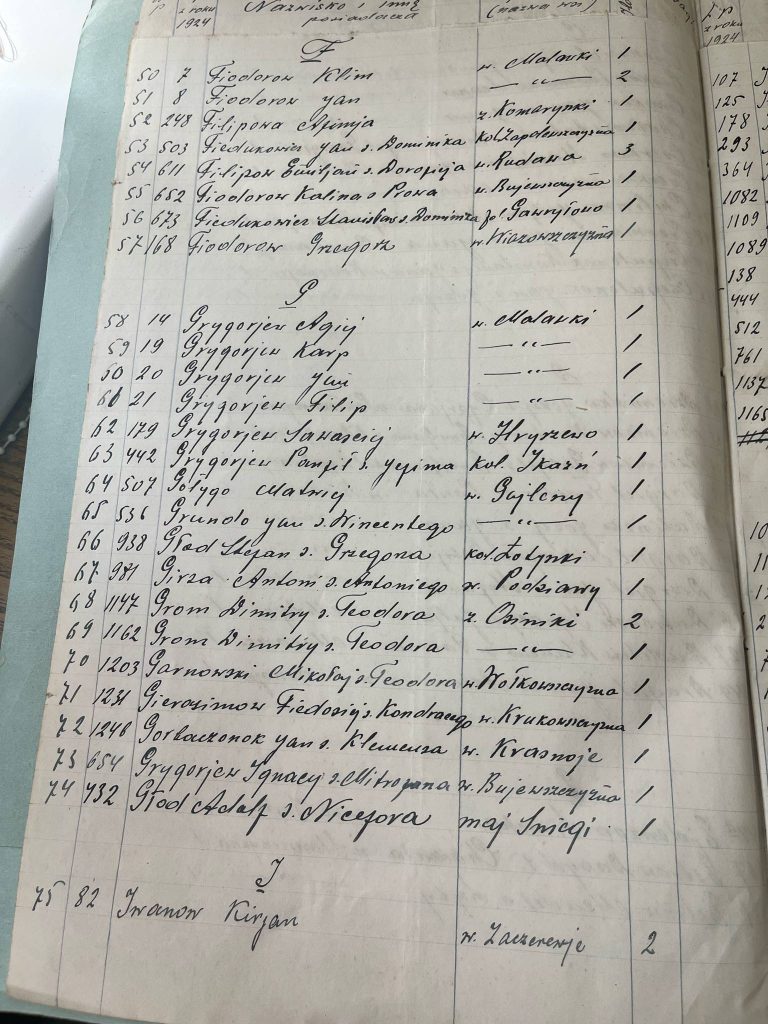 z roku 1924 Nazwisko i imię posiadacza (nazwa wsi) Lp z roku 1924
F
50 7 Fiodorow Klim w. Malawki 1
51 8 Fiodorow Jan — " — 2
52 248 Filipowa Afimja z. Komarynki 1
53 503 Fiedukowicz Jan s. Dominika kol. Zapoleuszczyzna 1
54 611 Filipow Emiljan s. Dorofieja w. Rudawa 3
55 652 Fiodorow Kalina s Prowa w. Bujewszczyzna 1
56 673 Fiedukowicz Stanisław s. Dominika fol Gawryłowo 1
57 168 Fiodorow Grzegorz w. Wiazowszczyzna 1
G
58 14 Grygorjew Agiej w. Malawki 1
59 19 Grygorjew Karp — " — 1
60 20 Grygorjew Jan — " — 1
61 21 Grygorjew Filip — " — 1
62 179 Grygorjew Sawasciej w. Hryszewo 1
63 442 Grygorjew Panfił s. Jefima kol. Ikaźń 1
64 507 Gołygo Matwiej w. Gojleny 1
65 536 Grundo Jan s. Wincentego — " — 1
66 938 Głod Stefan s. Grzegorza kol. Łotynki 1
67 981 Girza Antoni s. Antoniego w. Podziawy 1
68 1147 Grom Dimitry s. Teodora z. Osiniki 2
69 1162 Grom Dimitry s. Teodora — " — 1
70 1203 Garnowski Mikołaj s. Teodora w. Wołkowszczyzna 1
71 1231 Gierasimow Fiedosiej s. Kondracego w. Krukowszczyzna 1
72 1246 Gorbaczonok Jan s. Klemensa w. Krasnoje 1
73 654 Grygorjew Ignacy s. Mitrofana w. Bujewszczyzna 1
74 732 Głod Adolf s. Nicefora maj Sniegi 1
J
75 82 Iwanow Kirjan w. Zaczerewje 2
107
125
178
293
364
1082
1109
1089
138
444
512
761
1137
1165